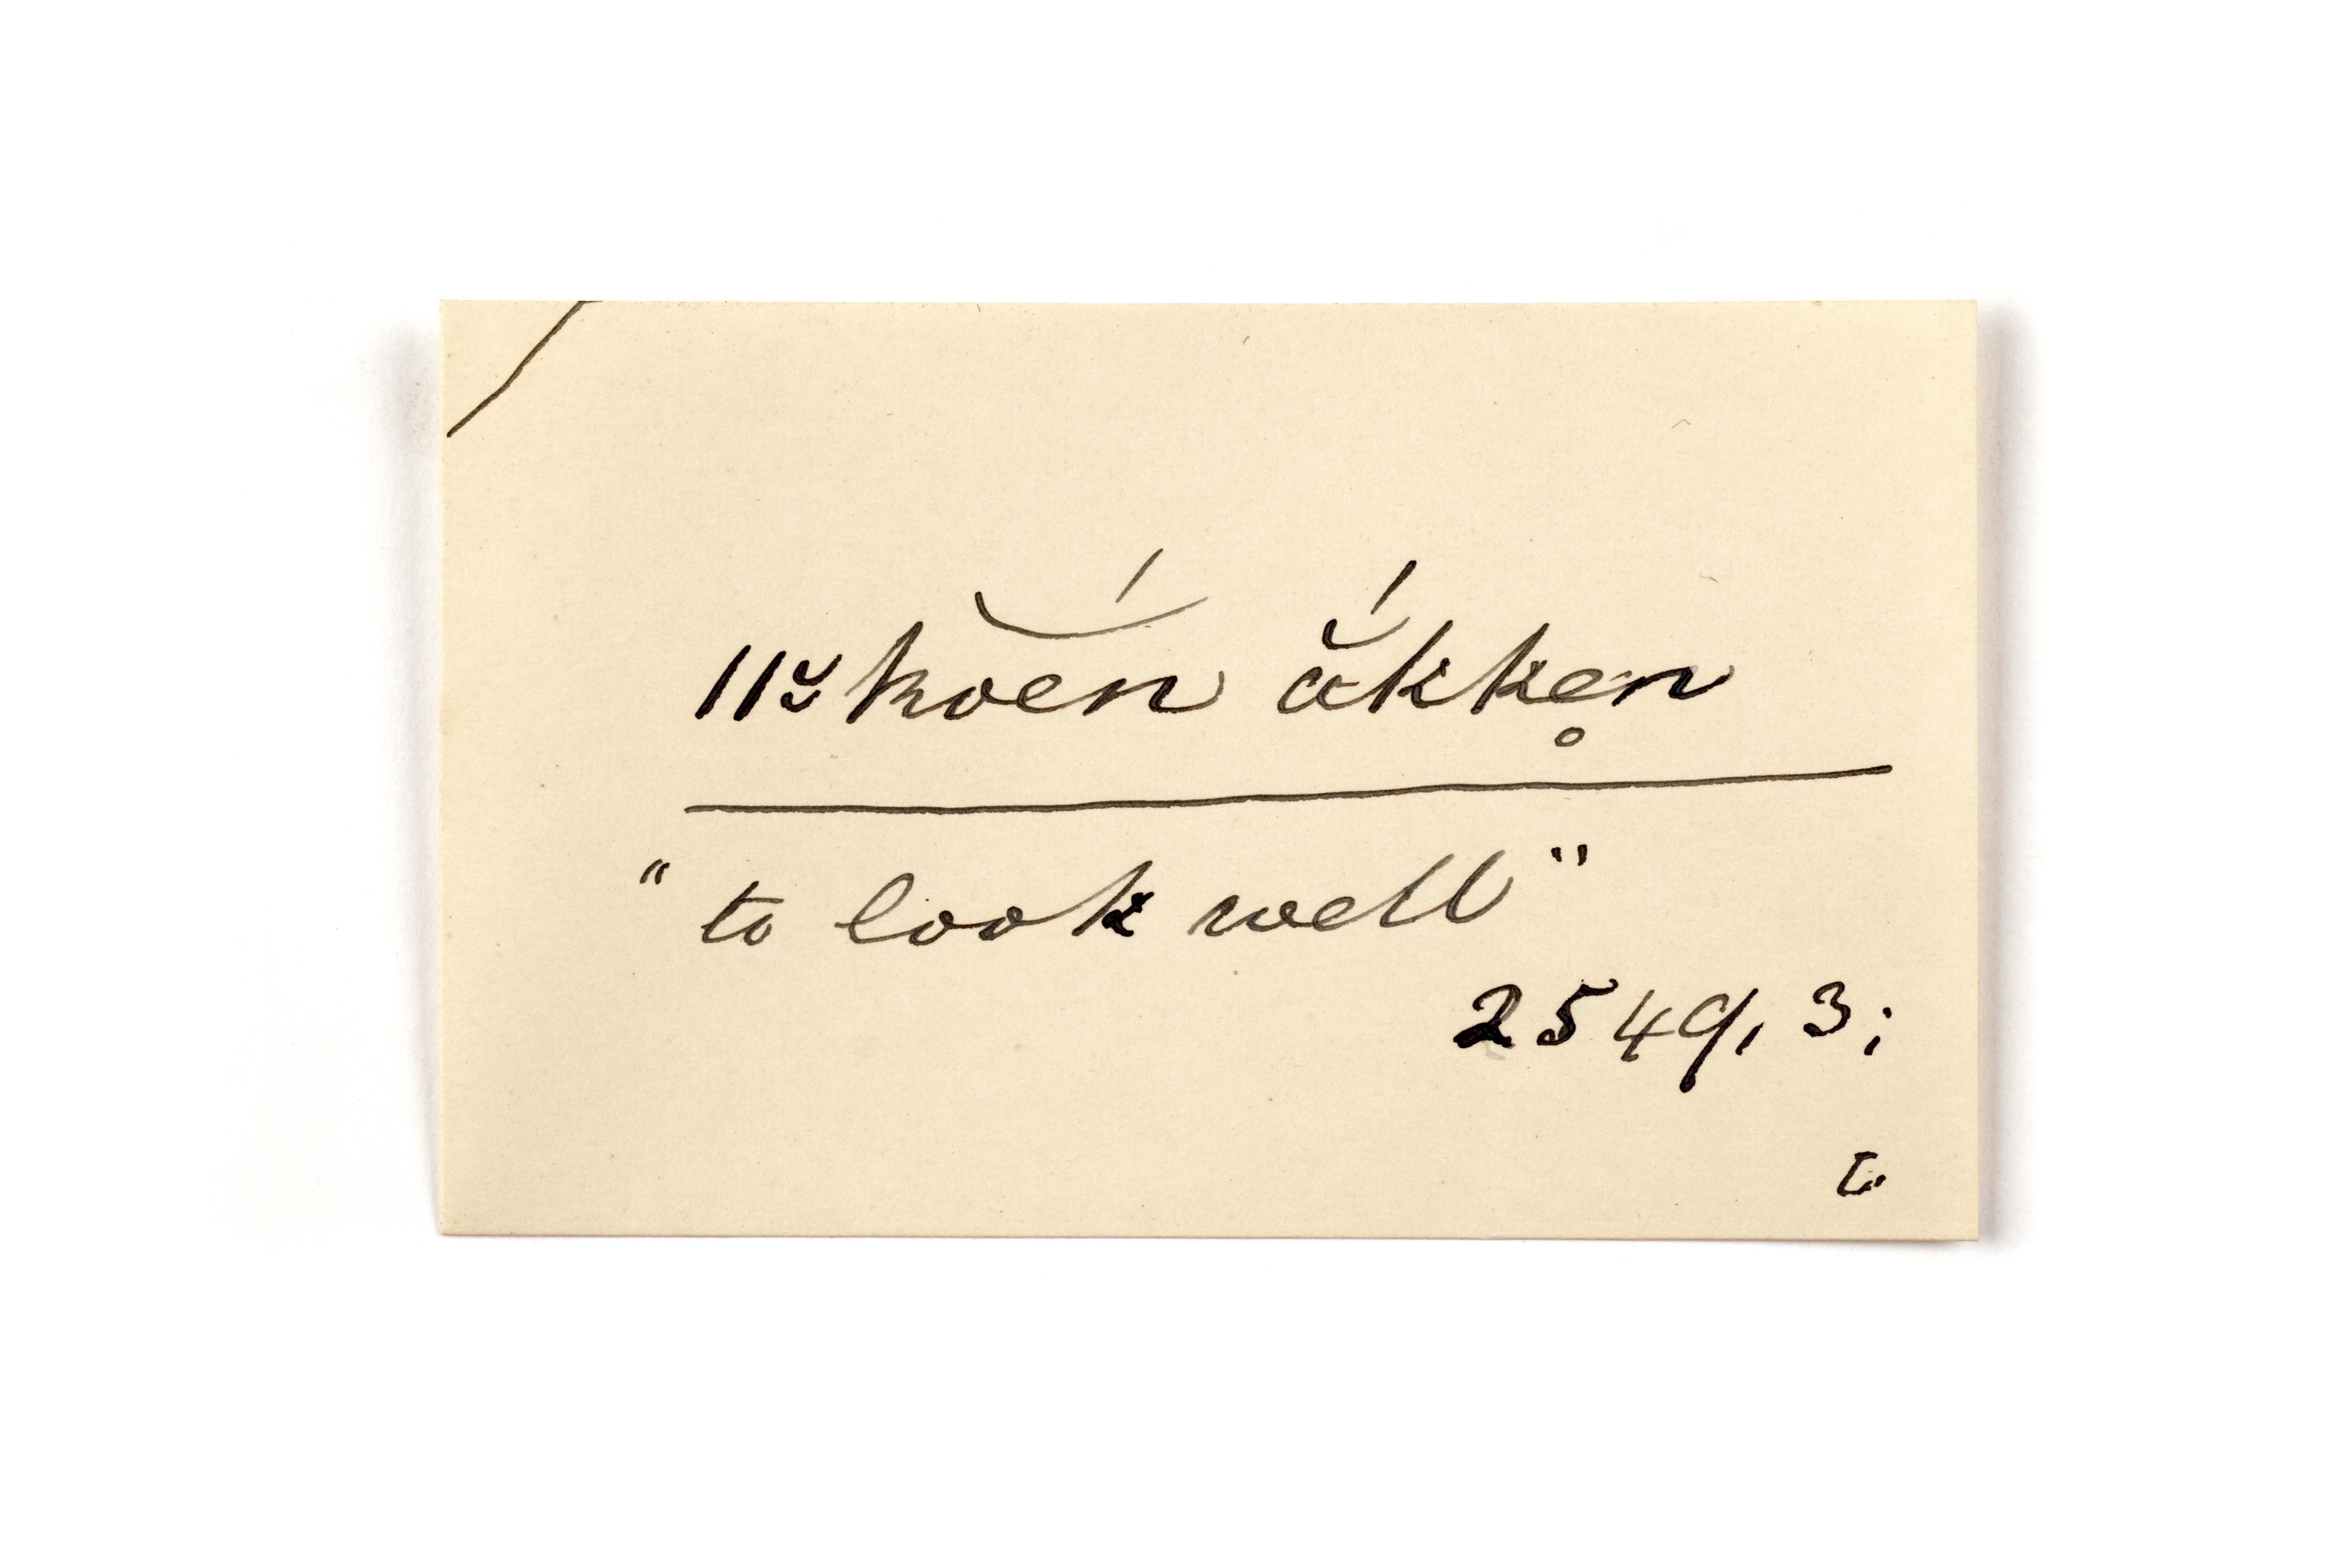 ǁ̆k͜oén ắkke̥n
"to look well"
2549, 3;
L.